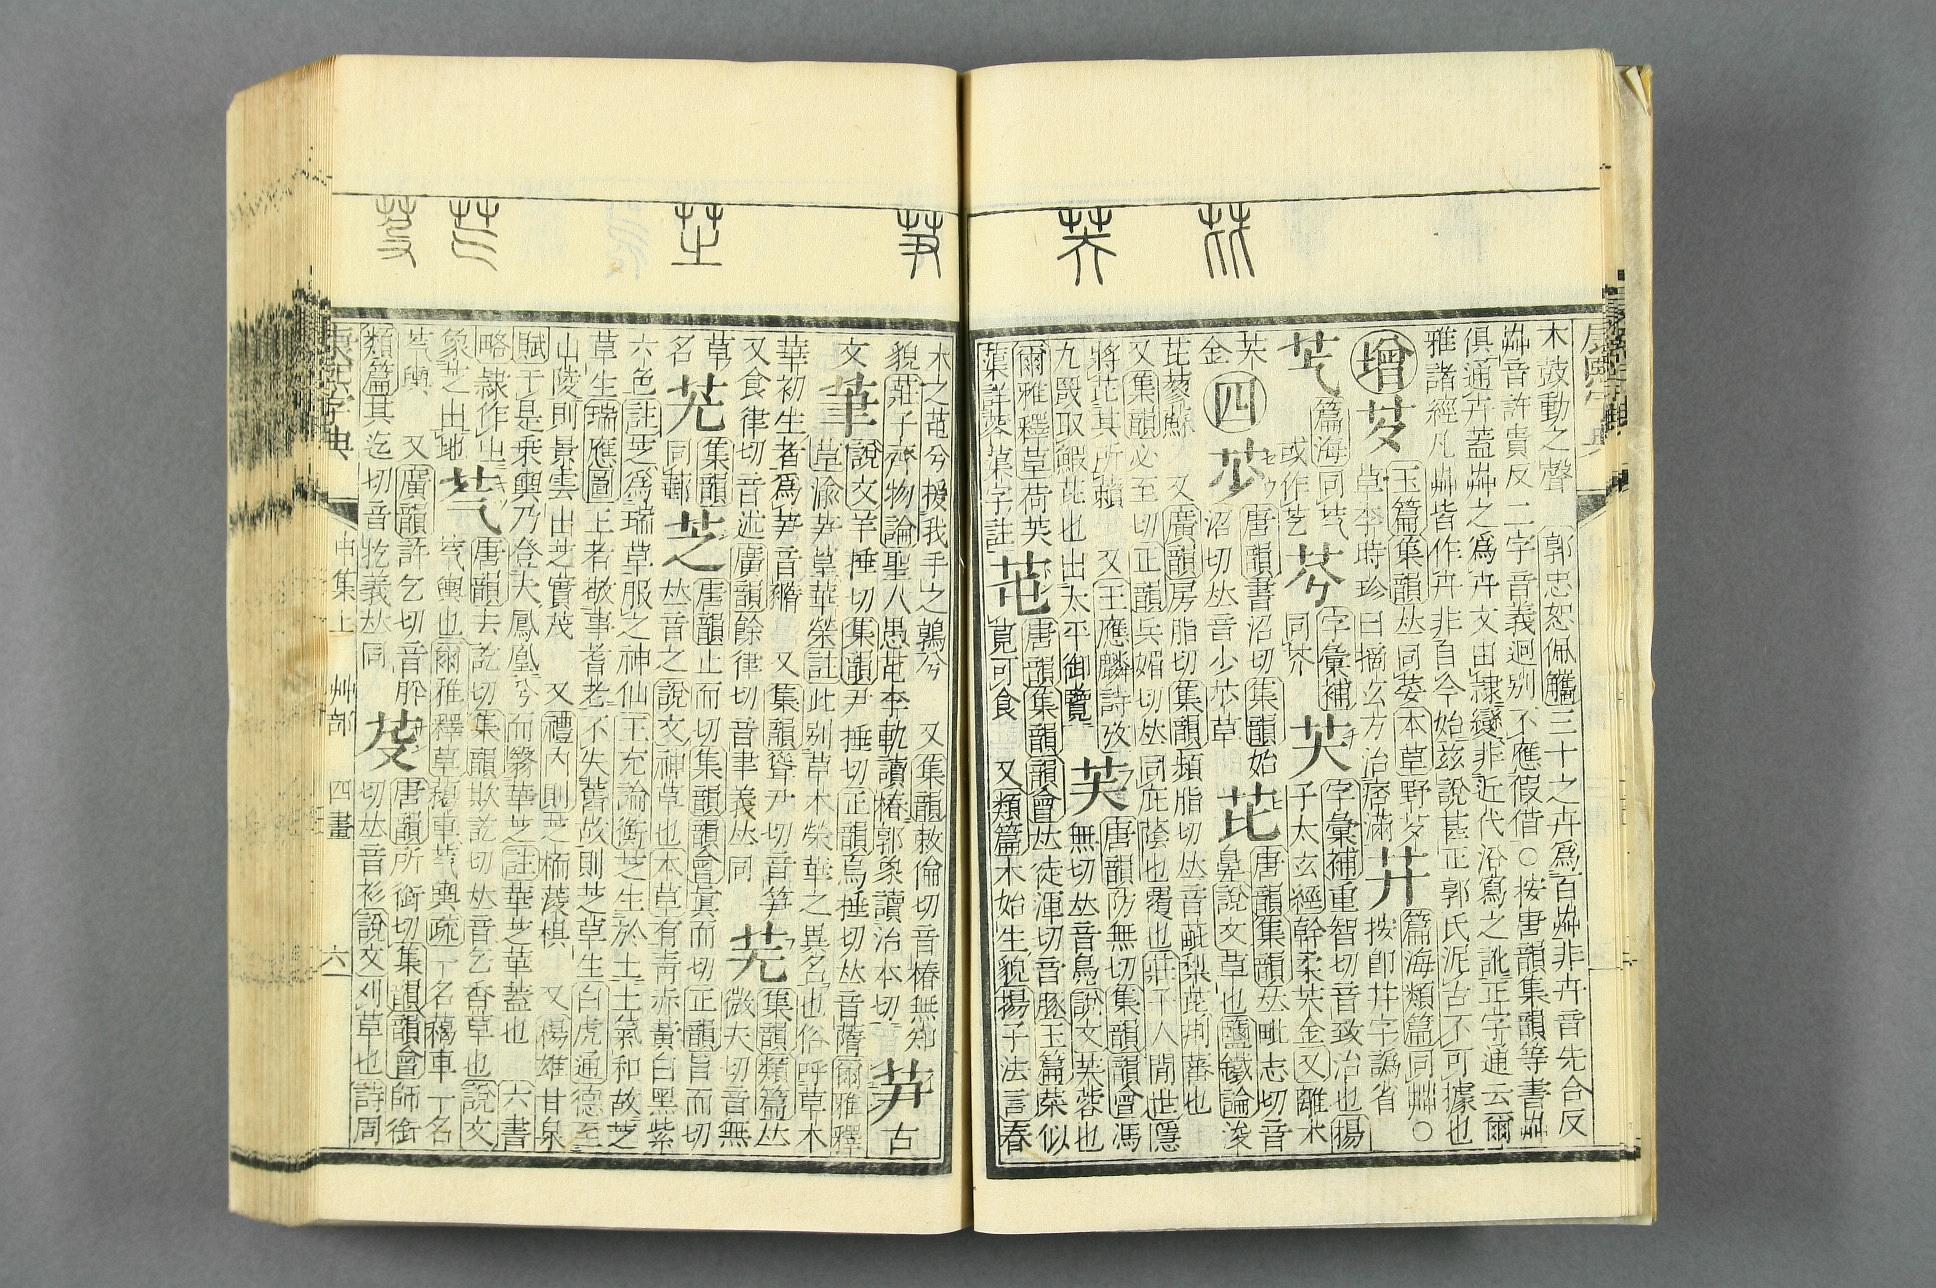 木鼓動之聲 郭忠恕佩觿三十之卉爲百艸非卉音先合反
艸音許貴反二字音義迥別不應假借○按唐韻集韻等書艸
俱通卉蓋艸之爲卉文由隸變非近代沿寫之訛正字通云爾
雅諸經凡艸皆作卉非自今始茲說甚正郭氏泥古不可據也
增
芆
玉篇集韻𠀤同荽本草野芆
草李時珍曰摘玄方治痞滿
芓
篇海類篇同艸○
按卽井字譌省
芞
篇海同芞
或作艺
芬
字彙補
同芥
芖
字彙補重智切音致治也揚
子太玄經幹柔芖金又離木
芖
金
四
芕
唐韻書沼切集韻始
沼切𠀤音少芕草
芘
唐韻集韻𠀤毗志切音
鼻說文草也鹽鐵論浚
芘蓼蘇 又廣韻房脂切集韻頻脂切𠀤音毗梨芘荆蕃也
又集韻必至切正韻兵媚切𠀤同庇蔭也覆也莊子人閒世隱
將芘其所藾 又王應麟詩攷
九罭取鰕芘也出太平御覽
芙
唐韻防無切集韻韻會馮
無切𠀤音鳧說文芙蓉也
爾雅釋草荷芙
蕖詳蓉蕖字註
芚
唐韻集韻韻會𠀤徒渾切音豚玉篇菜似
莧可食 又類篇木始生貌揚子法言春
木之芚兮援我手之鶉兮 又集韻敕倫切音椿無知
貌莊子齊物論聖人愚芚李軌讀椿郭象讀治本切
芛
古
文
䒫
說文羊捶切集韻尹捶切正韻烏捶切𠀤音蓶爾雅釋
草蕍芛葟華榮註此別草木榮華之異名也俗呼草木
華初生者爲芛音豬 又集韻聳尹切音筍
又食律切音述廣韻餘律切音聿義𠀤同
芜
集韻類篇𠀤
微夫切音無
草
名
芫
集韻
同䣝
芝
唐韻止而切集韻韻會眞而切正韻旨而切
𠀤音之說文神草也本草有靑赤黃白黑紫
六色註芝爲瑞草服之神仙王充論衡芝生於土土氣和故芝
草生瑞應圖上者敬事耆老不失舊故則芝草生白虎通德至
山陵則景雲出芝實茂 又禮內則芝栭蔆椇 又揚雄甘泉
賦于是乘輿乃登夫鳳凰兮而翳華芝註華芝華蓋也 六書
略隸作㞢
象芝出地
芞
唐韻去訖切集韻欺訖切𠀤音乞香草也說文
芞輿也爾雅釋草藒車芞輿疏一名藒車一名
芞輿 又廣韻許乞切音肸
類篇其迄切音扢義𠀤同
芟
唐韻所銜切集韻韻會師銜
切𠀤音衫說文刈草也詩周
康熙字典 申集上 艸部 四畫 六